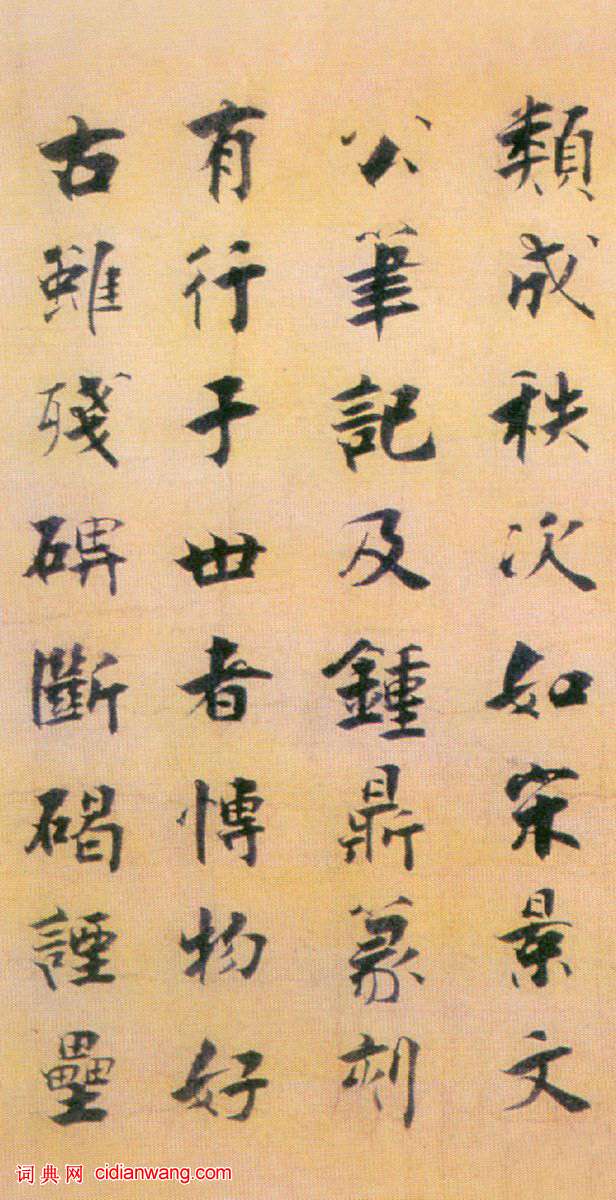 類成秩次如宋景文
公筆記及鍾鼎篆刻
有行于世者博物好
古雖殘碑斷碣諲壘
词典网 cidianwang.com